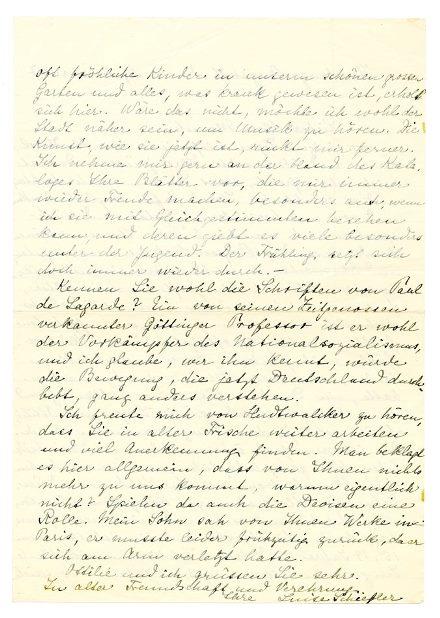 oft fröhliche Kinder in unserm schönen grossen
Garten und alles, was krank gewesen ist, erholt
sich hier. Wäre das nicht, möchte ich wohl der
Stadt näher sein, um Musik zu hören. Die
Kunst, wie sie jetzt ist, rückt mir ferner.
Ich nehme mir gern an der Hand des Kata-
loges Ihre Blätter vor, die mir immer
wieder Freude machen, besonders auch, wenn
ich sie mit Gleichgestimmten besehen
kann, und deren giebt es viele besonders
unter der Jugend. Der Frühling setzt sich
doch immer wieder durch. —
Kennen Sie wohl die Schriften von Paul
de Lagarde? Ein von seinen Zeitgenossen
verkannter Göttinger Professor ist er wohl
der Vorkämpfer des Nationalsozialismus,
und ich glaube, wer ihn kennt, würde
die Bewegung, die jetzt Deutschland durch-
bebt, ganz anders verstehen.
Ich freute mich von zu hören,
dass Sie in alter Frische weiter arbeiten
und viel Anerkennung finden. Man beklagt
es hier allgemein, dass von Ihnen nichts
mehr zu uns kommt, warum eigentlich
nicht? Spielen da auch die Devisen eine
Rolle. Mein Sohn sah von Ihnen Werke in
Paris, er musste leider frühzeitig zurück, da er
sich am Arm verletzt hatte.
Ottilie und ich grüssen Sie sehr.
In alter Freundschaft und Verehrung
Ihre Luise Schiefler